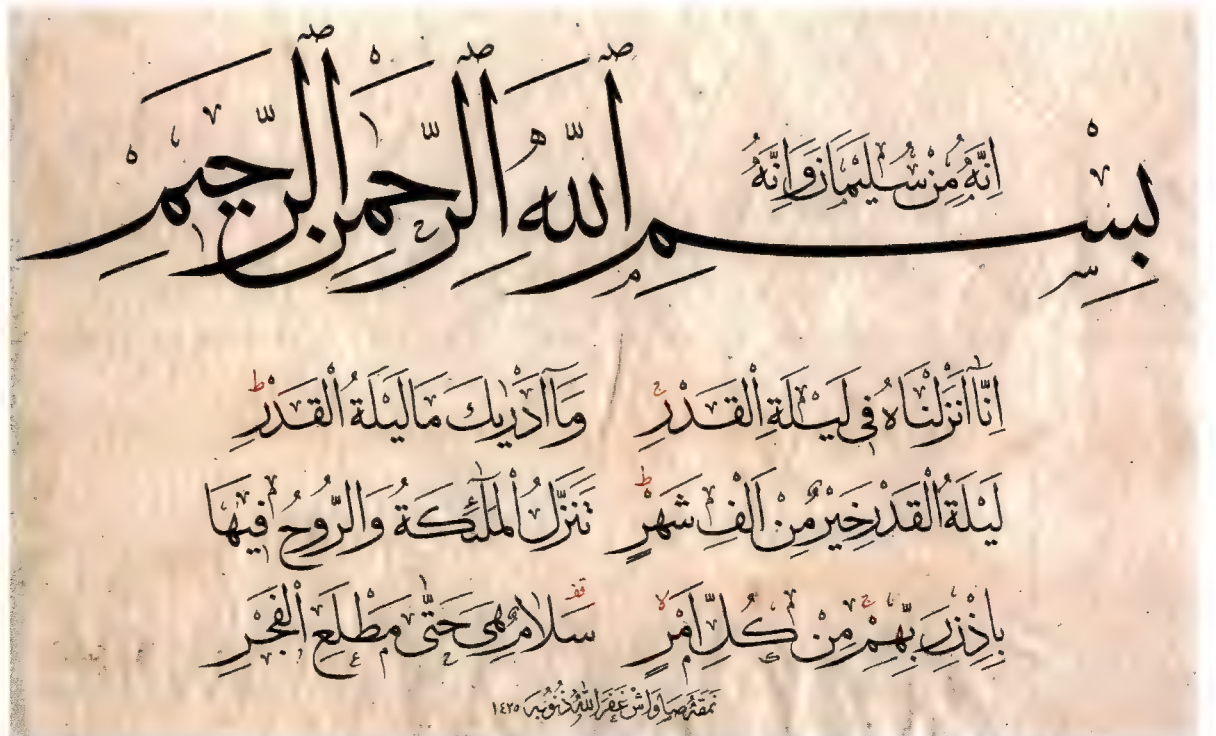 إِنَّهُ مِنْ سُلَيْمَانَ وَإِنَّهُ
بِسْمِ ٱللّٰهِ ٱلرَّحْمٰنِ ٱلرَّحِيمِ
اِنَّٓا اَنْزَلْنَاهُ فِى لَيْلَةِ الْقَدْرِ ۚ وَمَٓا اَدْرٰيكَ مَا لَيْلَةُ الْقَدْرِ ۜ
لَيْلَةُ الْقَدْرِ خَيْرٌ مِنْ اَلْفِ شَهْرٍ ۜ تَنَزَّلُ الْمَلٰٓئِكَةُ وَالرُّوحُ فِيهَا
بِاِذْنِ رَبِّهِمْ ۚ مِنْ كُلِّ اَمْرٍ ۙ سَلَامٌ هِىَ حَتّٰى مَطْلَعِ الْفَجْرِ
غَفَرَ اللّٰهُ ذُنُوبَهُ ١٤٢٥